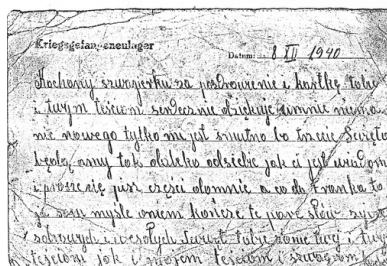 Kriegsgefangenenlager
Datum: 8 XII 1940
Kochany szwagierku za pozdrowienie i kartkę tobie
i twym teściom serdecznie dziękuję umnie niema
nic nowego tylko mi jest smutno bo
tak daleko odsiebie jak ci jest wiadom
i proszę cię pisz części olomnie a co do Franka to
ja sam myśle oniem kończe te pare słów
i wesołych świąt tobie żonie twy i twy
teściom jak i mojem teściom i szwagrom